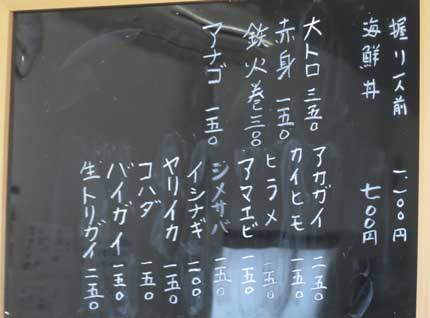 握り一人前 一、二〇〇円
海鮮丼 七〇〇円
大トロ 三五〇
赤身 一五〇
鉄火巻 三〇〇
アナゴ 一五〇
アカガイ 二五〇
カイヒモ 一五〇
ヒラメ 一五〇
アマエビ 一五〇
シメサバ 一五〇
イシナギ 二〇〇
ヤリイカ 一五〇
コハダ 一五〇
バイガイ 一五〇
生トリガイ 二五〇